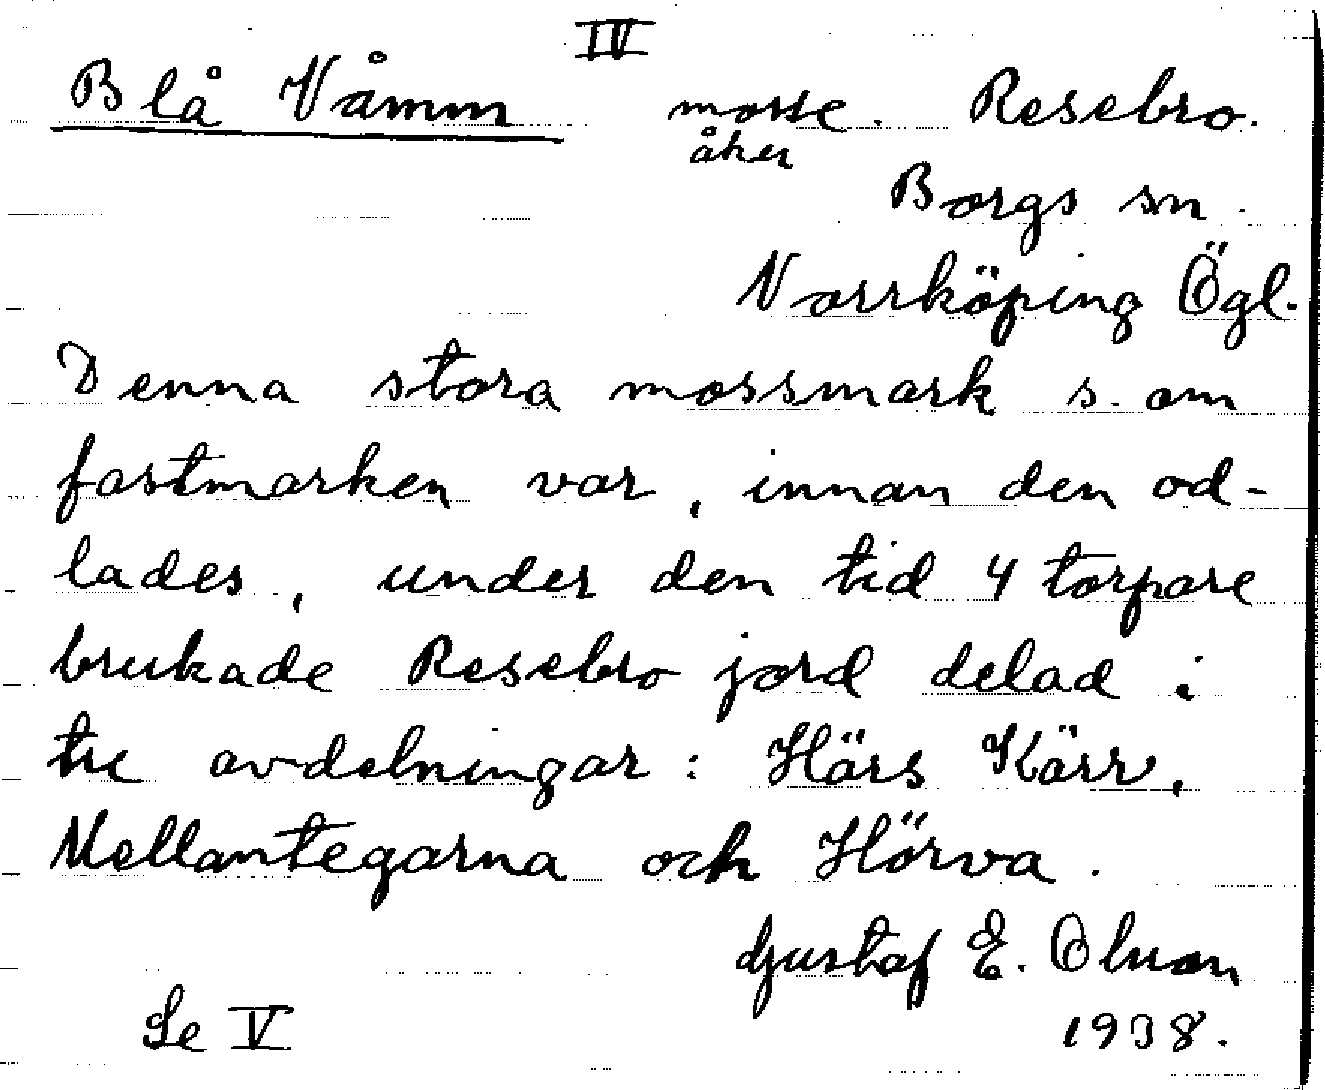 IV
Blå Våmm mosse. Resebro.
åker
Borgs sn.
Norrköping Ögl.
Denna stora mossmark s. om
fastmarken var, innan den od-
lades, under den tid 4 torpare
brukade Resebro jord delad i
tre avdelningar: Härs Kärr,
Mellantegarna och Hörva.
Gustaf E. Olsson
1938.
Se V